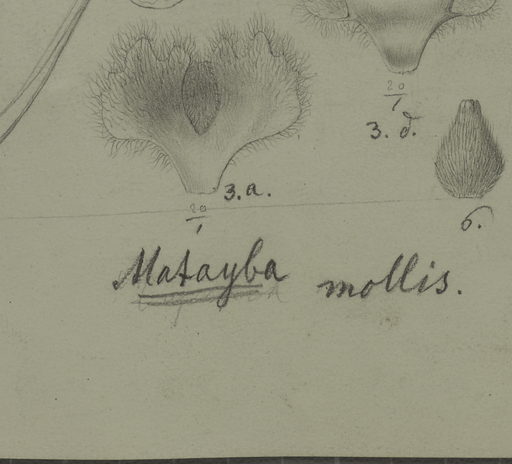 20
1
3. d.
3. a.
20
1
6.
Matayba mollis.